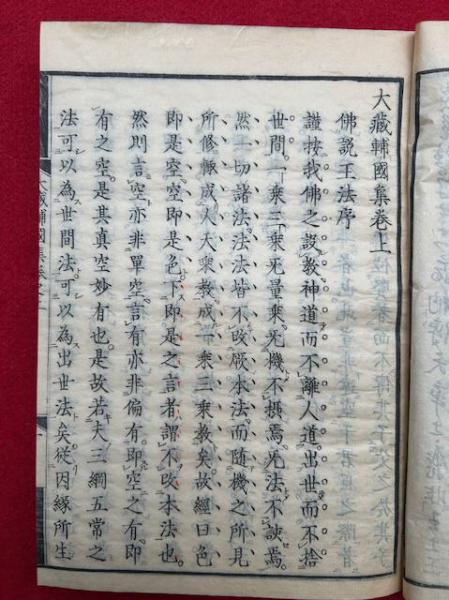 大藏輔國集卷上
佛說王法序
謹按我佛之設教神道而不離人道出世而不捨
世間一乘三乘無量乘無機不攝焉無法不談焉
然一切諸法法法皆不改厥本法而隨機之所見
所修輙成人天乘教成一乘三乘教矣故經曰色
即是空空即是色下即是之言者謂不改本法也
然則言空亦非單空言有亦非偏有即空之有即
有之空是其真空妙有也是故若夫三綱五常之
法可以為世間法可以為出世法矣從因緣所生
大藏輔國集卷之上